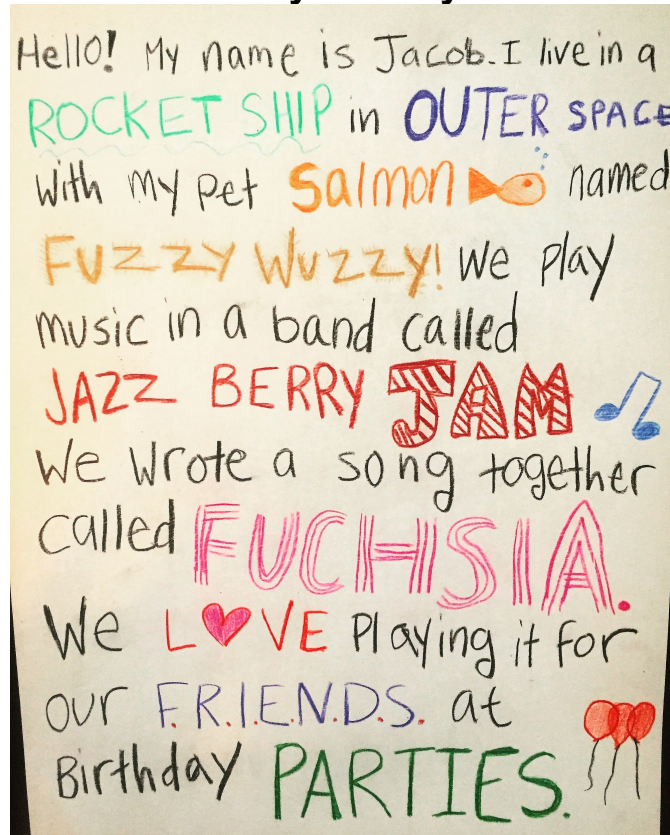 Hello! My name is Jacob. I live in a
ROCKET SHIP in OUTER SPACE
with my pet Salmon named
Fuzzy Wuzzy! We play
music in a band called
JAZZ BERRY JAM
We wrote a song together
called FUCHSIA.
We L♥VE Playing it for
our F.R.I.E.N.D.S. at
Birthday PARTIES.